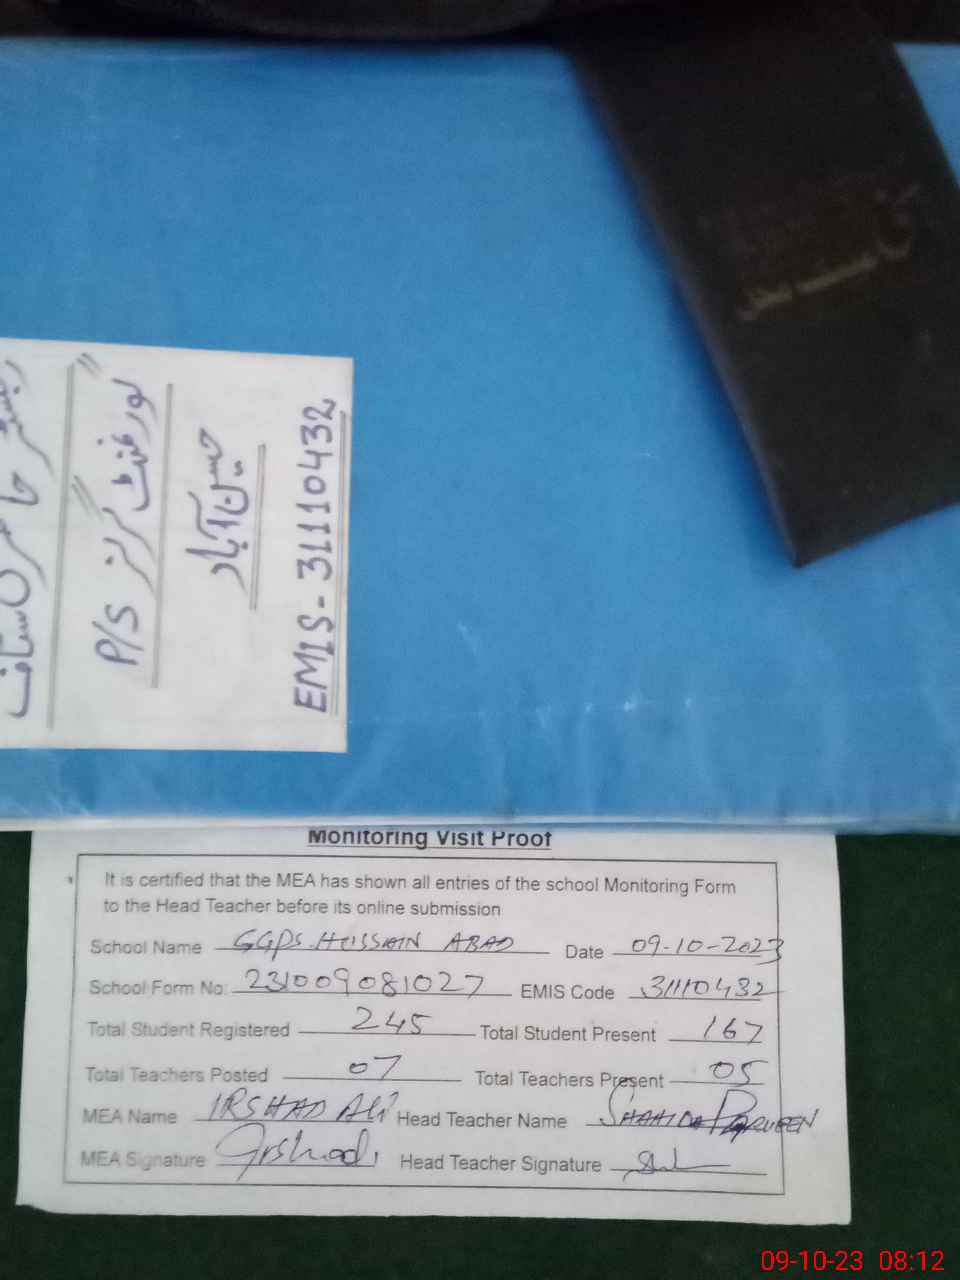 رجسٹر حاضری سٹاف
گورنمنٹ گرلز P/S
حسین آباد
EMIS - 31110432
Monitoring Visit Proof
It is certified that the MEA has shown all entries of the school Monitoring Form
to the Head Teacher before its online submission
School Name GGPS HUSSAIN ABAD Date 09-10-2023
School Form No: 231009081027 EMIS Code 31110432
Total Student Registered 245 Total Student Present 167
Total Teachers Posted 07 Total Teachers Present 05
MEA Name IRSHAD ALI Head Teacher Name SHAHIDA PARVEEN
MEA Signature Irshad Head Teacher Signature
09-10-23 08:12